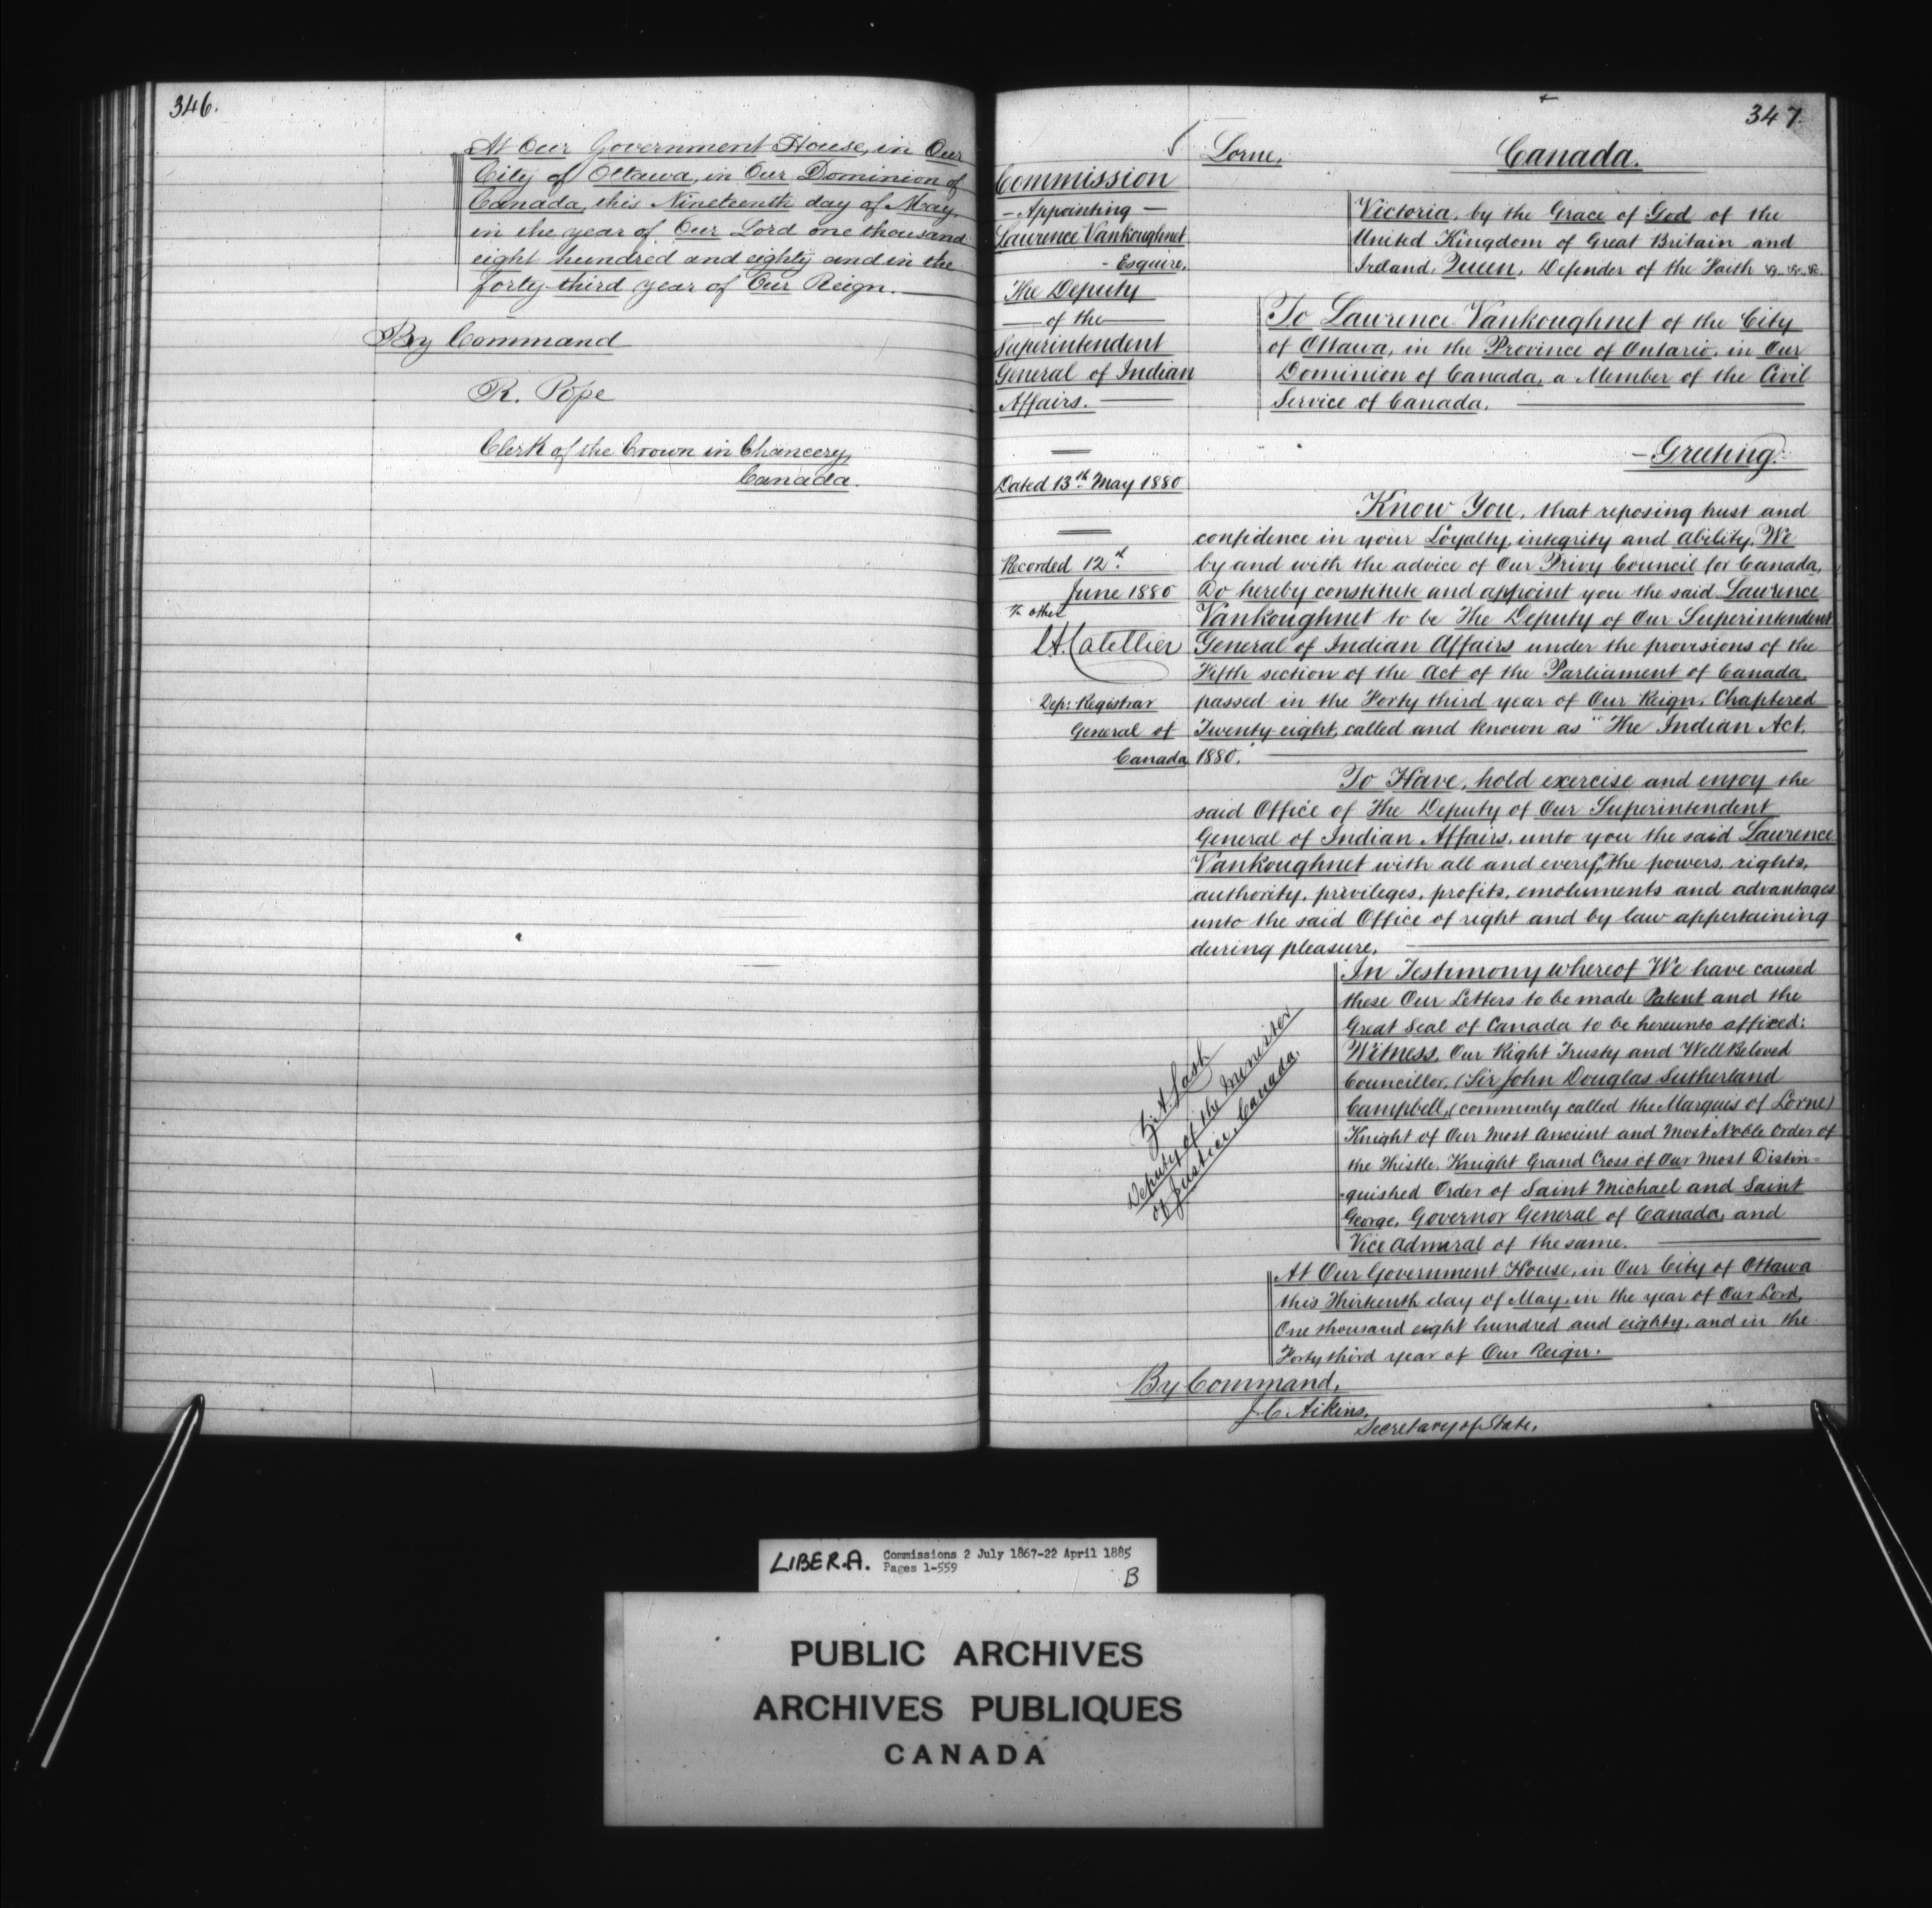 346.
At Our Government House, in Our
City of Ottawa, in Our Dominion of
Canada, this Nineteenth day of May,
in the year of Our Lord one thousand
eight hundred and eighty and in the
forty-third year of Our Reign.
By Command
R. Pope
Clerk of the Crown in Chancery,
Canada.
347.
Lorne,
Canada.
Commission
- Appointing -
Lawrence Vankoughnet
- Esquire,
The Deputy
of the
Superintendent
General of Indian
Affairs.
Dated 13th May 1880
Recorded 12d
June 1880
Dep: Registrar
General of
Canada
Victoria, by the Grace of God of the
United Kingdom of Great Britain and
Ireland, Queen, Defender of the Faith &c. &c. &c.
To Lawrence Vankoughnet of the City
of Ottawa, in the Province of Ontario, in Our
Dominion of Canada, a Member of the Civil
Service of Canada.
- Greeting:
Know You, that reposing trust and
confidence in your Loyalty, integrity and ability, We
by and with the advice of Our Privy Council for Canada,
Do hereby constitute and appoint you the said Lawrence
Vankoughnet to be The Deputy of Our Superintendent
General of Indian Affairs under the provisions of the
Fifth section of the Act of the Parliament of Canada,
passed in the Forty third year of Our Reign, Chaptered
Twenty-eight, called and known as "The Indian Act,
1880."
To Have, hold exercise and enjoy the
said Office of The Deputy of Our Superintendent
General of Indian Affairs, unto you the said Lawrence
Vankoughnet with all and every, the powers, rights,
authority, privileges, profits, emoluments and advantages
unto the said Office of right and by law appertaining
during pleasure.
In Testimony whereof We have caused
these Our Letters to be made Patent and the
Great Seal of Canada to be hereunto affixed:
Witness, Our Right Trusty and Well Beloved
Councillor, (Sir John Douglas Sutherland
Campbell, (commonly called the Marquis of Lorne)
Knight of Our Most Ancient and Most Noble Order of
the Thistle, Knight Grand Cross of Our Most Distin=
guished Order of Saint Michael and Saint
George, Governor General of Canada, and
Vice Admiral of the same.
Z. A. Lash
Deputy of the Minister
of Justice, Canada.
At Our Government House, in Our City of Ottawa
this Thirteenth day of May, in the year of Our Lord,
One thousand eight hundred and eighty, and in the
Forty third year of Our Reign.
By Command,
J. C. Aikins,
Secretary of State,
LIBER.A. Commissions 2 July 1867-22 April 1885
Pages 1-559
B
PUBLIC ARCHIVES
ARCHIVES PUBLIQUES
CANADA